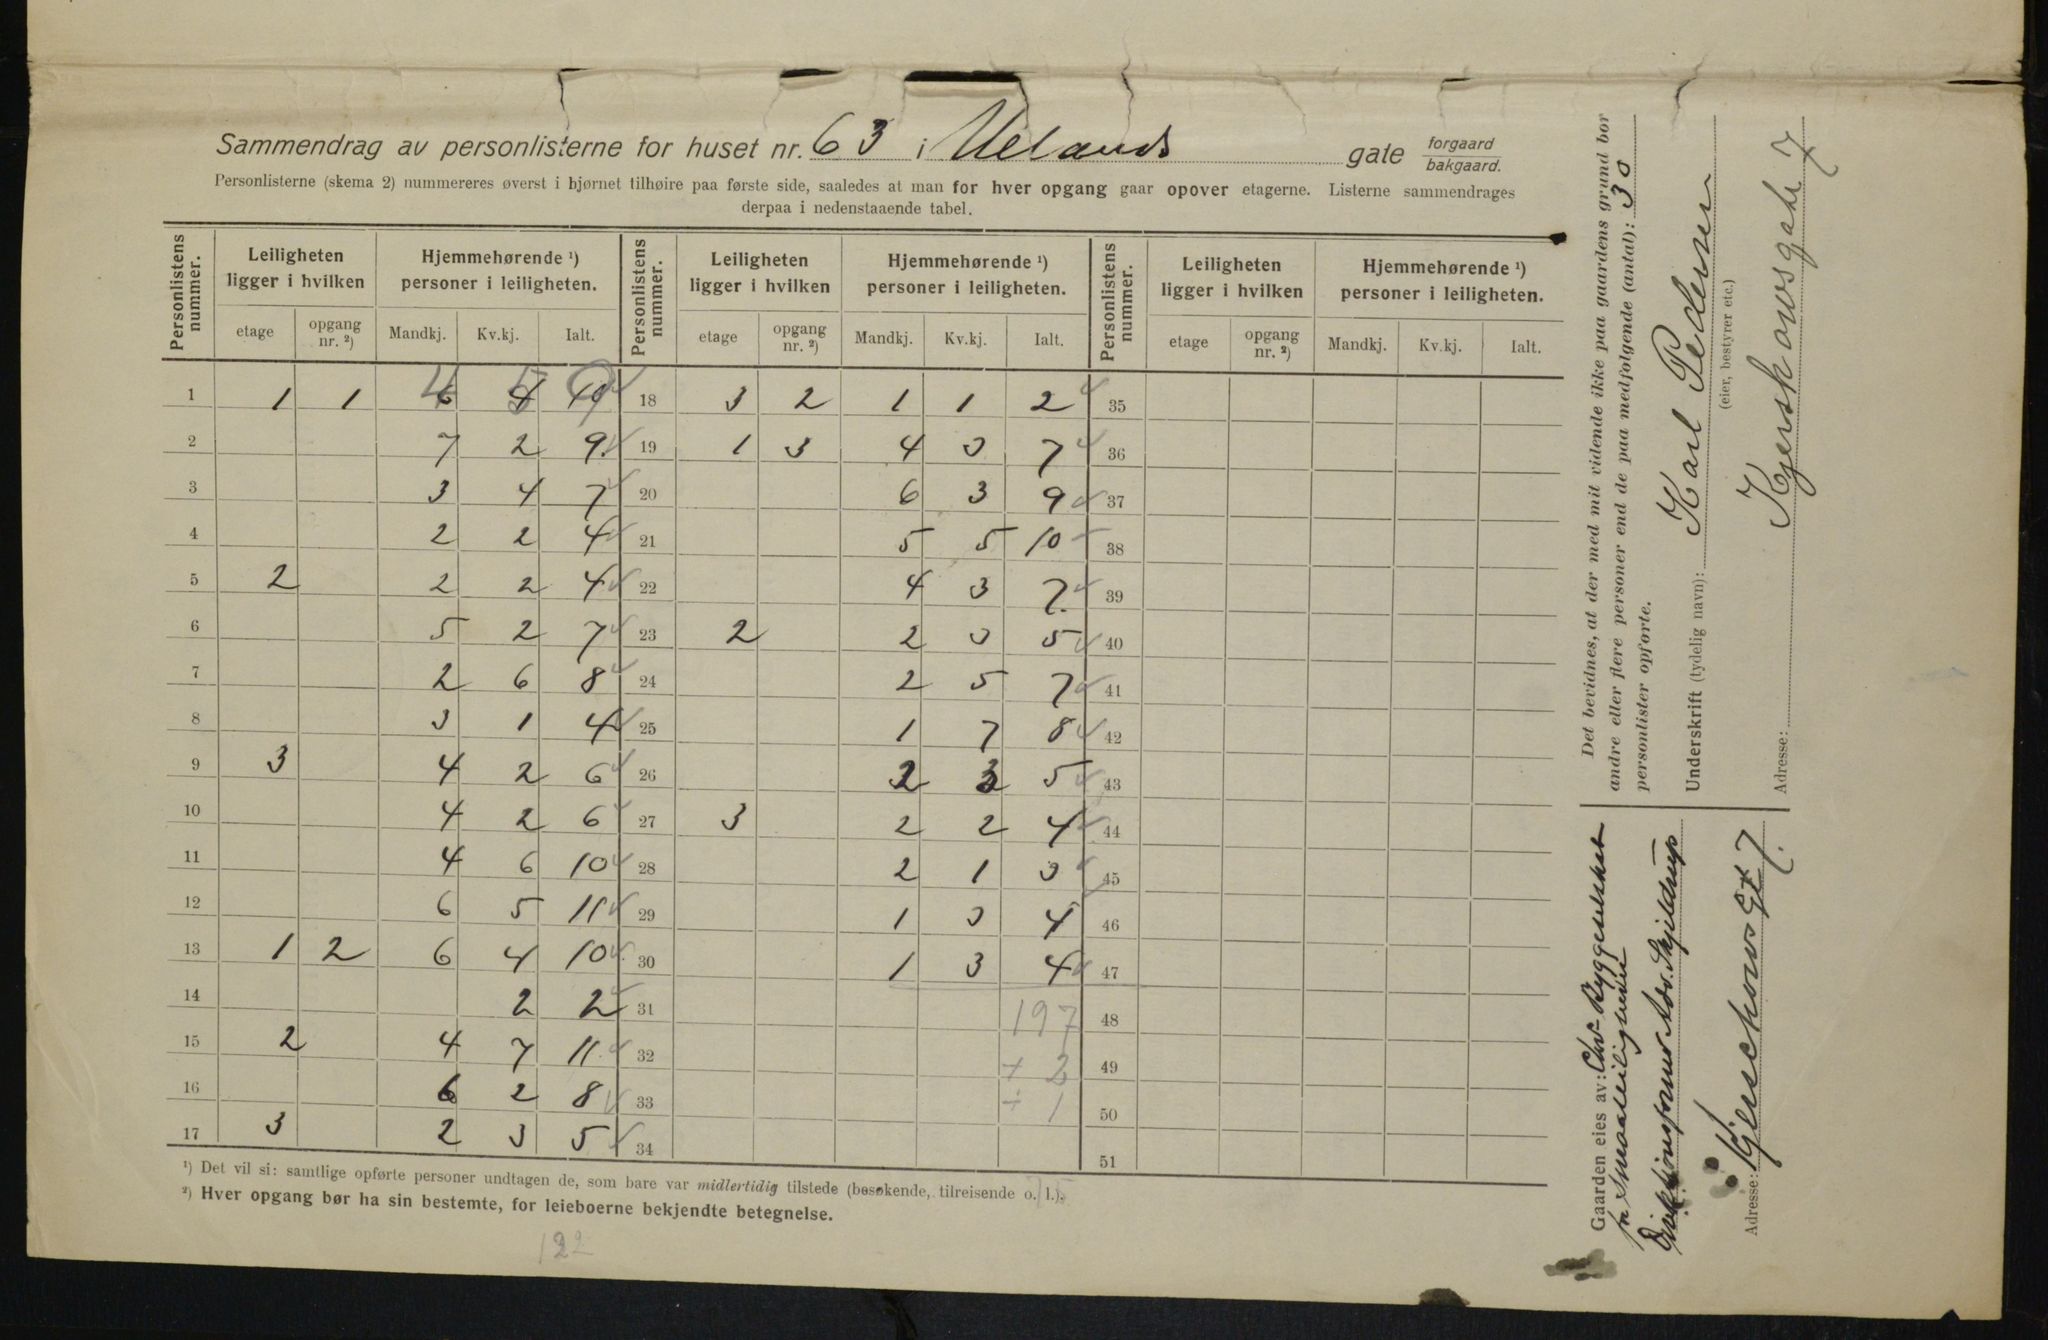 Sammendrag av personlisterne for huset nr. 63 i Uelands gate forgaard bakgaard.
Personlisterne (skema 2) nummereres øverst i hjørnet tilhøire paa første side, saaledes at man for hver opgang gaar opover etagerne. Listerne sammendrages
derpaa i nedenstaaende tabel.
Personlistens nummer. Leiligheten ligger i hvilken Hjemmehørende ¹) personer i leiligheten. Personlistens nummer. Leiligheten ligger i hvilken Hjemmehørende ¹) personer i leiligheten. Personlistens nummer. Leiligheten ligger i hvilken Hjemmehørende ¹) personer i leiligheten.
etage opgang nr. ²) Mandkj. Kv.kj. Ialt. etage opgang nr. ²) Mandkj. Kv.kj. Ialt. etage opgang nr. ²) Mandkj. Kv.kj. Ialt.
1 1 1 6 4 4 5 10 9 18 3 2 1 1 2 35
2 7 2 9 19 1 3 4 3 7 36
3 3 4 7 20 6 3 9 37
4 2 2 4 21 5 5 10 38
5 2 2 2 4 22 4 3 7 39
6 5 2 7 23 2 2 3 5 40
7 2 6 8 24 2 5 7 41
8 3 1 4 25 1 7 8 42
9 3 4 2 6 26 2 3 5 43
10 4 2 6 27 3 2 2 4 44
11 4 6 10 28 2 1 3 45
12 6 5 11 29 1 3 4 46
13 1 2 6 4 10 30 1 3 4 47
14 2 2 31 197 48
15 2 4 7 11 32 + 2 49
16 6 2 8 33 ÷ 1 50
17 3 2 3 5 34 51
¹) Det vil si: samtlige opførte personer undtagen de, som bare var midlertidig tilstede (besøkende, tilreisende o. l.).
²) Hver opgang bør ha sin bestemte, for leieboerne bekjendte betegnelse.
122
Det bevidnes, at der med mit vidende ikke paa gaardens grund bor
andre eller flere personer end de paa medfølgende (antal): 30
personlister opførte.
Underskrift (tydelig navn): Karl Pedersen
(eier, bestyrer etc.)
Adresse: Kjerskowsgate 7
Gaarden eies av: Chra Byggeselskab
for smaaleiligheter
Adv. Skjeldrup
Adresse: Kjerschows gt 7.